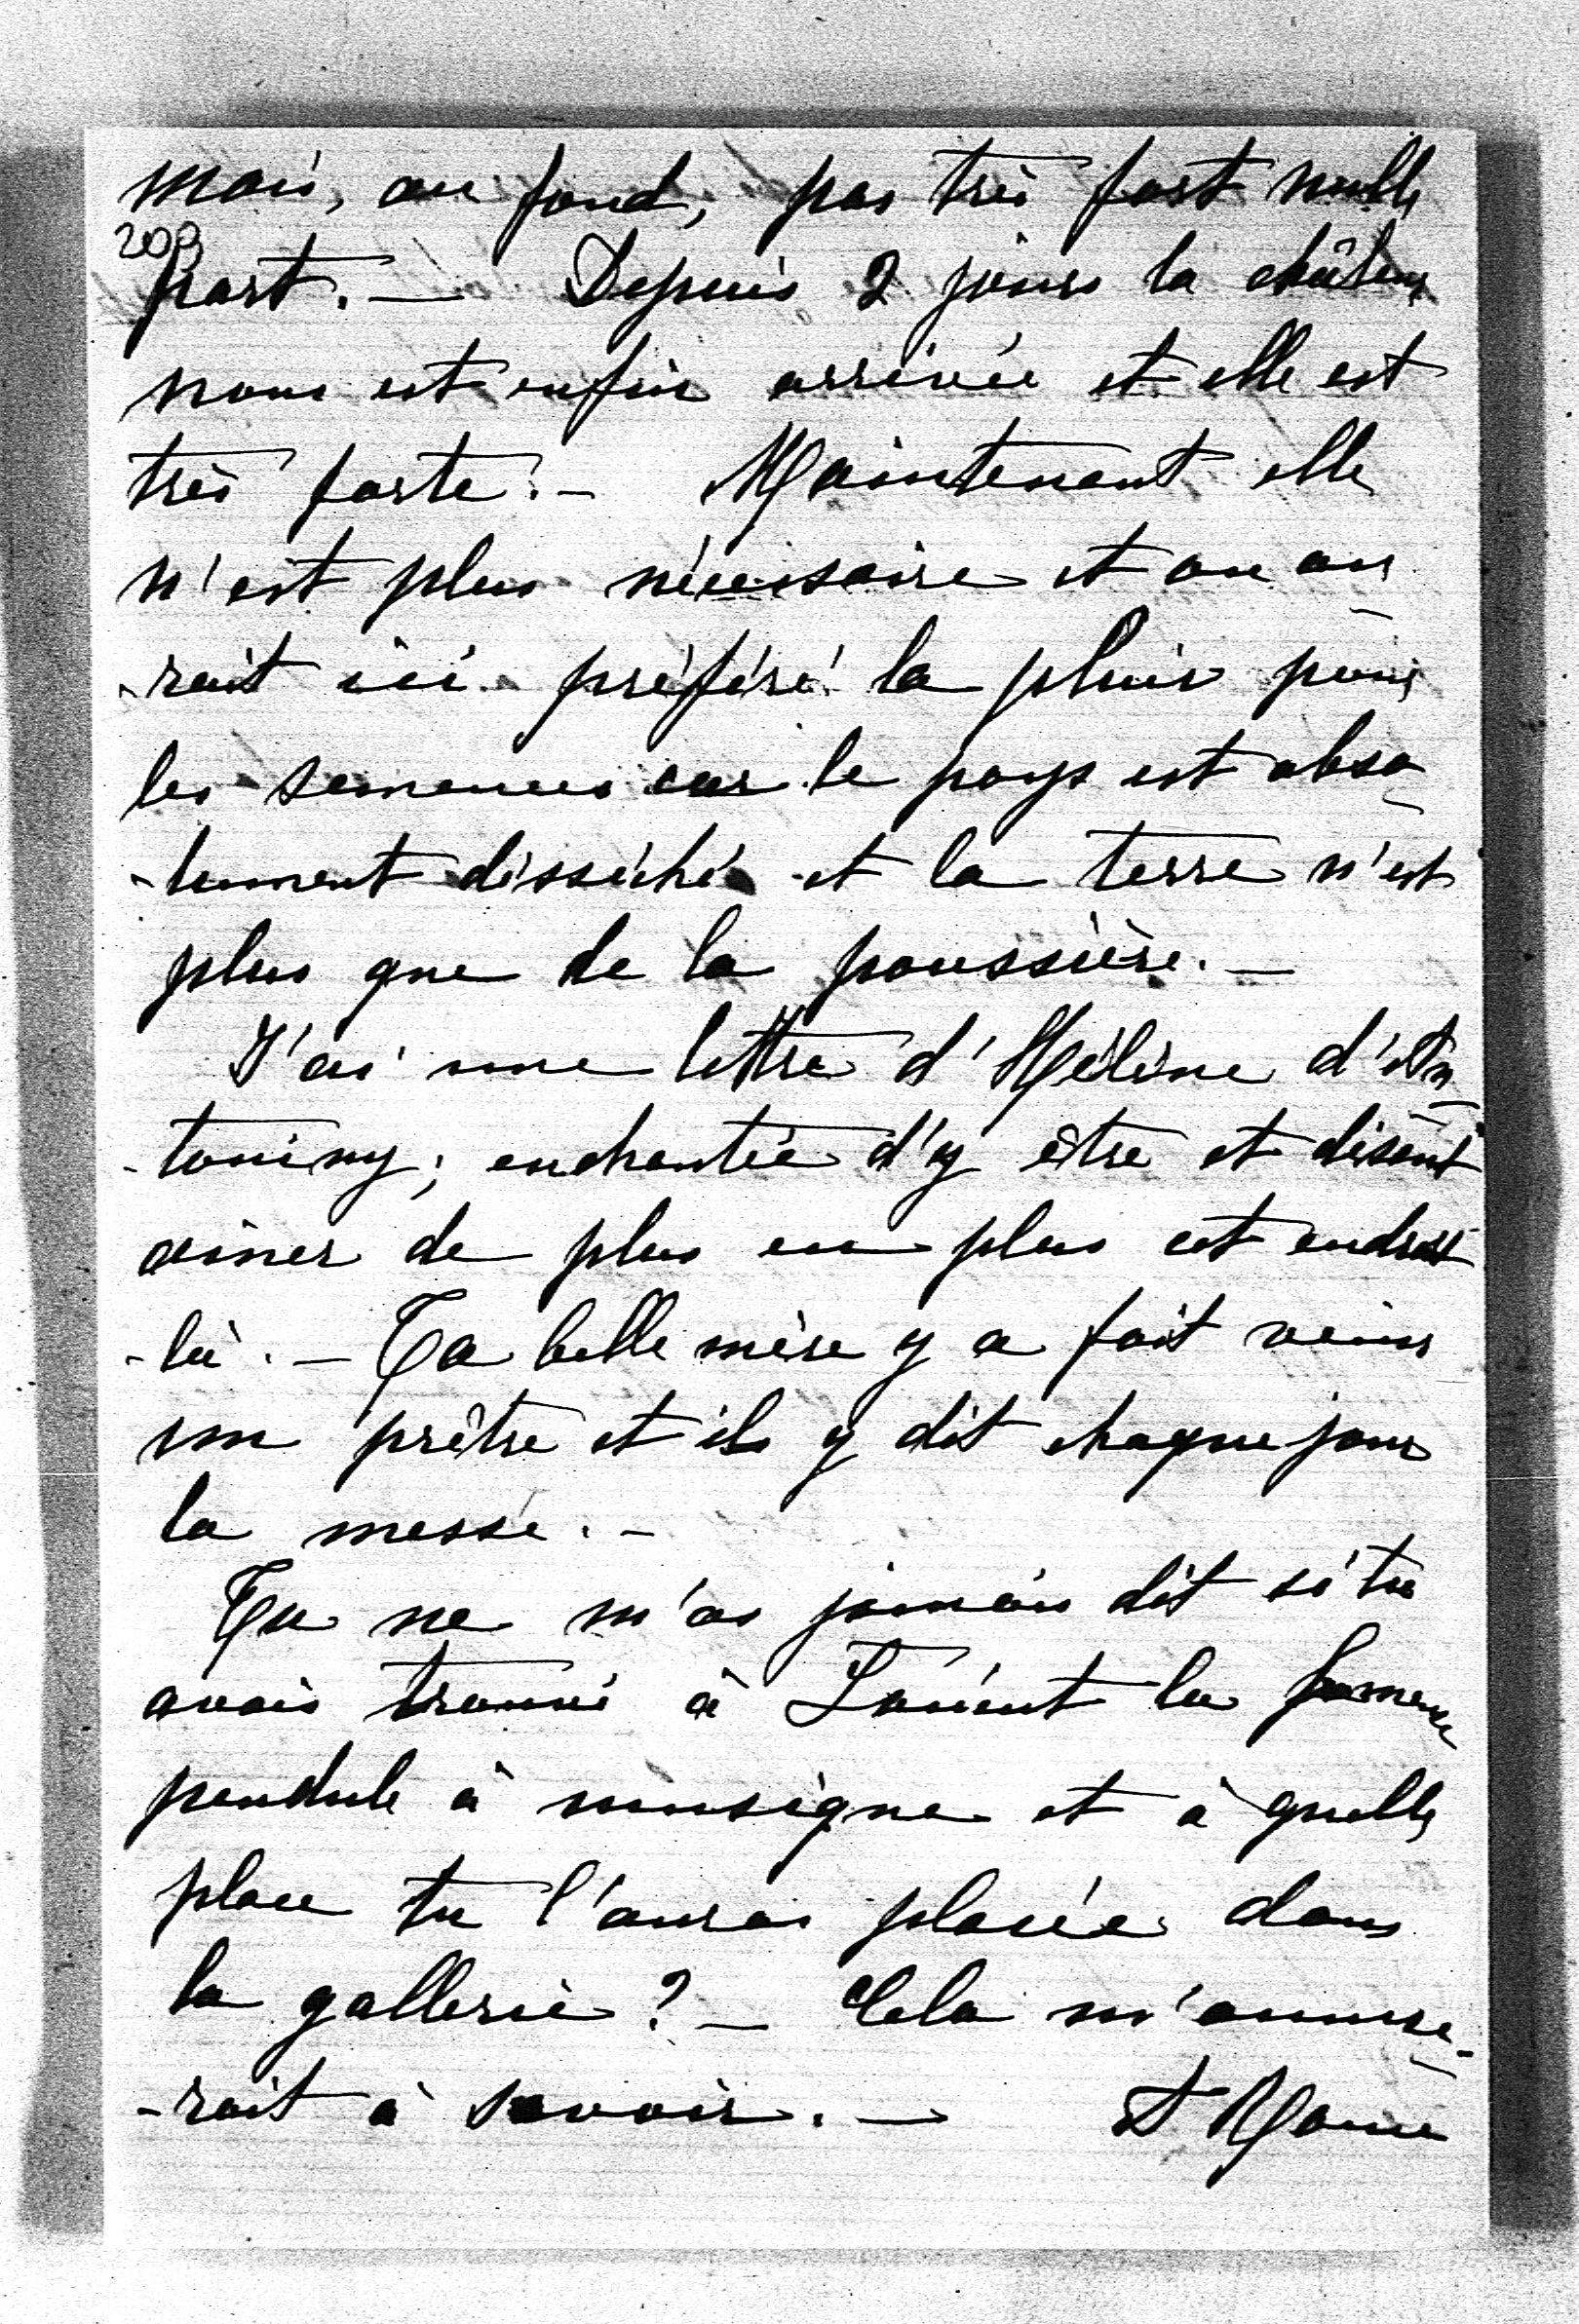 mais, au fond, pas très fort nulle
209
part. — Depuis 2 jours la châleur
nous est enfin arrivée et elle est
très forte. — Maintenant elle
n'est plus nécessaire et on au
-rait ici préféré la pluie pour
les semences car le pays est abso
-lument désséché et la terre n'est
plus que de la poussière. —
J'ai une lettre d'Hélène d'An
-toniny; enchantée d'y être et disant
aimer de plus en plus cet endroit
-là. — Ta belle mère y a fait venir
un prêtre et il y dit chaque jour
la messe. —
Tu ne m'as jamais dit si tu
avais trouvé à Łańcut la fameuse
pendule à musique et à quelle
place tu l'auras placée dans
la gallerie? — Cela m'amuse-
-rait à savoir. —